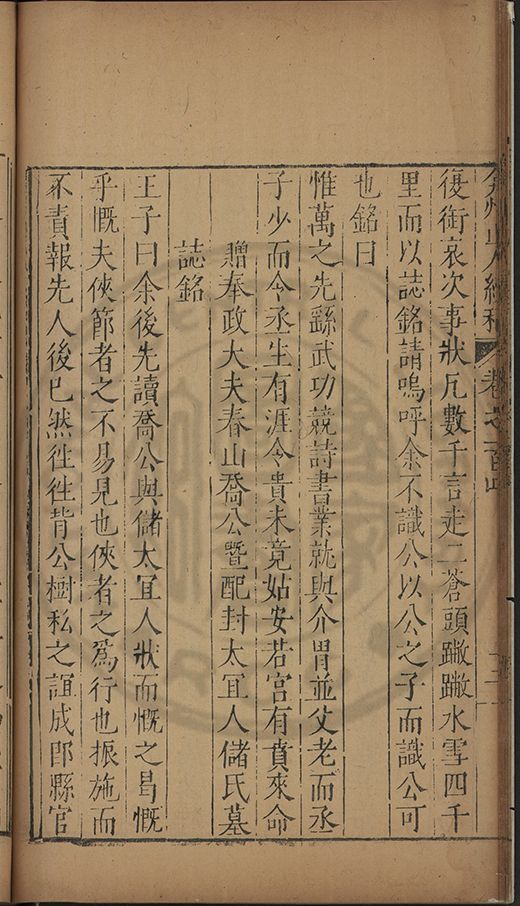 弇州山人續稿 卷之一百
復銜哀次事狀凡數千言走二蒼頭蹴蹴水雪四千
里而以誌銘請嗚呼余不識公以公之子而識公可
也銘曰
惟萬之先繇武功競詩書業就與介胄並父老而丞
子少而令丞生有涯令貴未竟姑安若宮有賁來命
贈奉政大夫春山喬公曁配封太冝人儲氏墓
誌銘
王子曰余後先讀喬公與儲太冝人狀而慨之曷慨
乎慨夫俠節者之不易見也俠者之爲行也振施而
不責報先人後已然徃徃背公樹私之誼成郎縣官